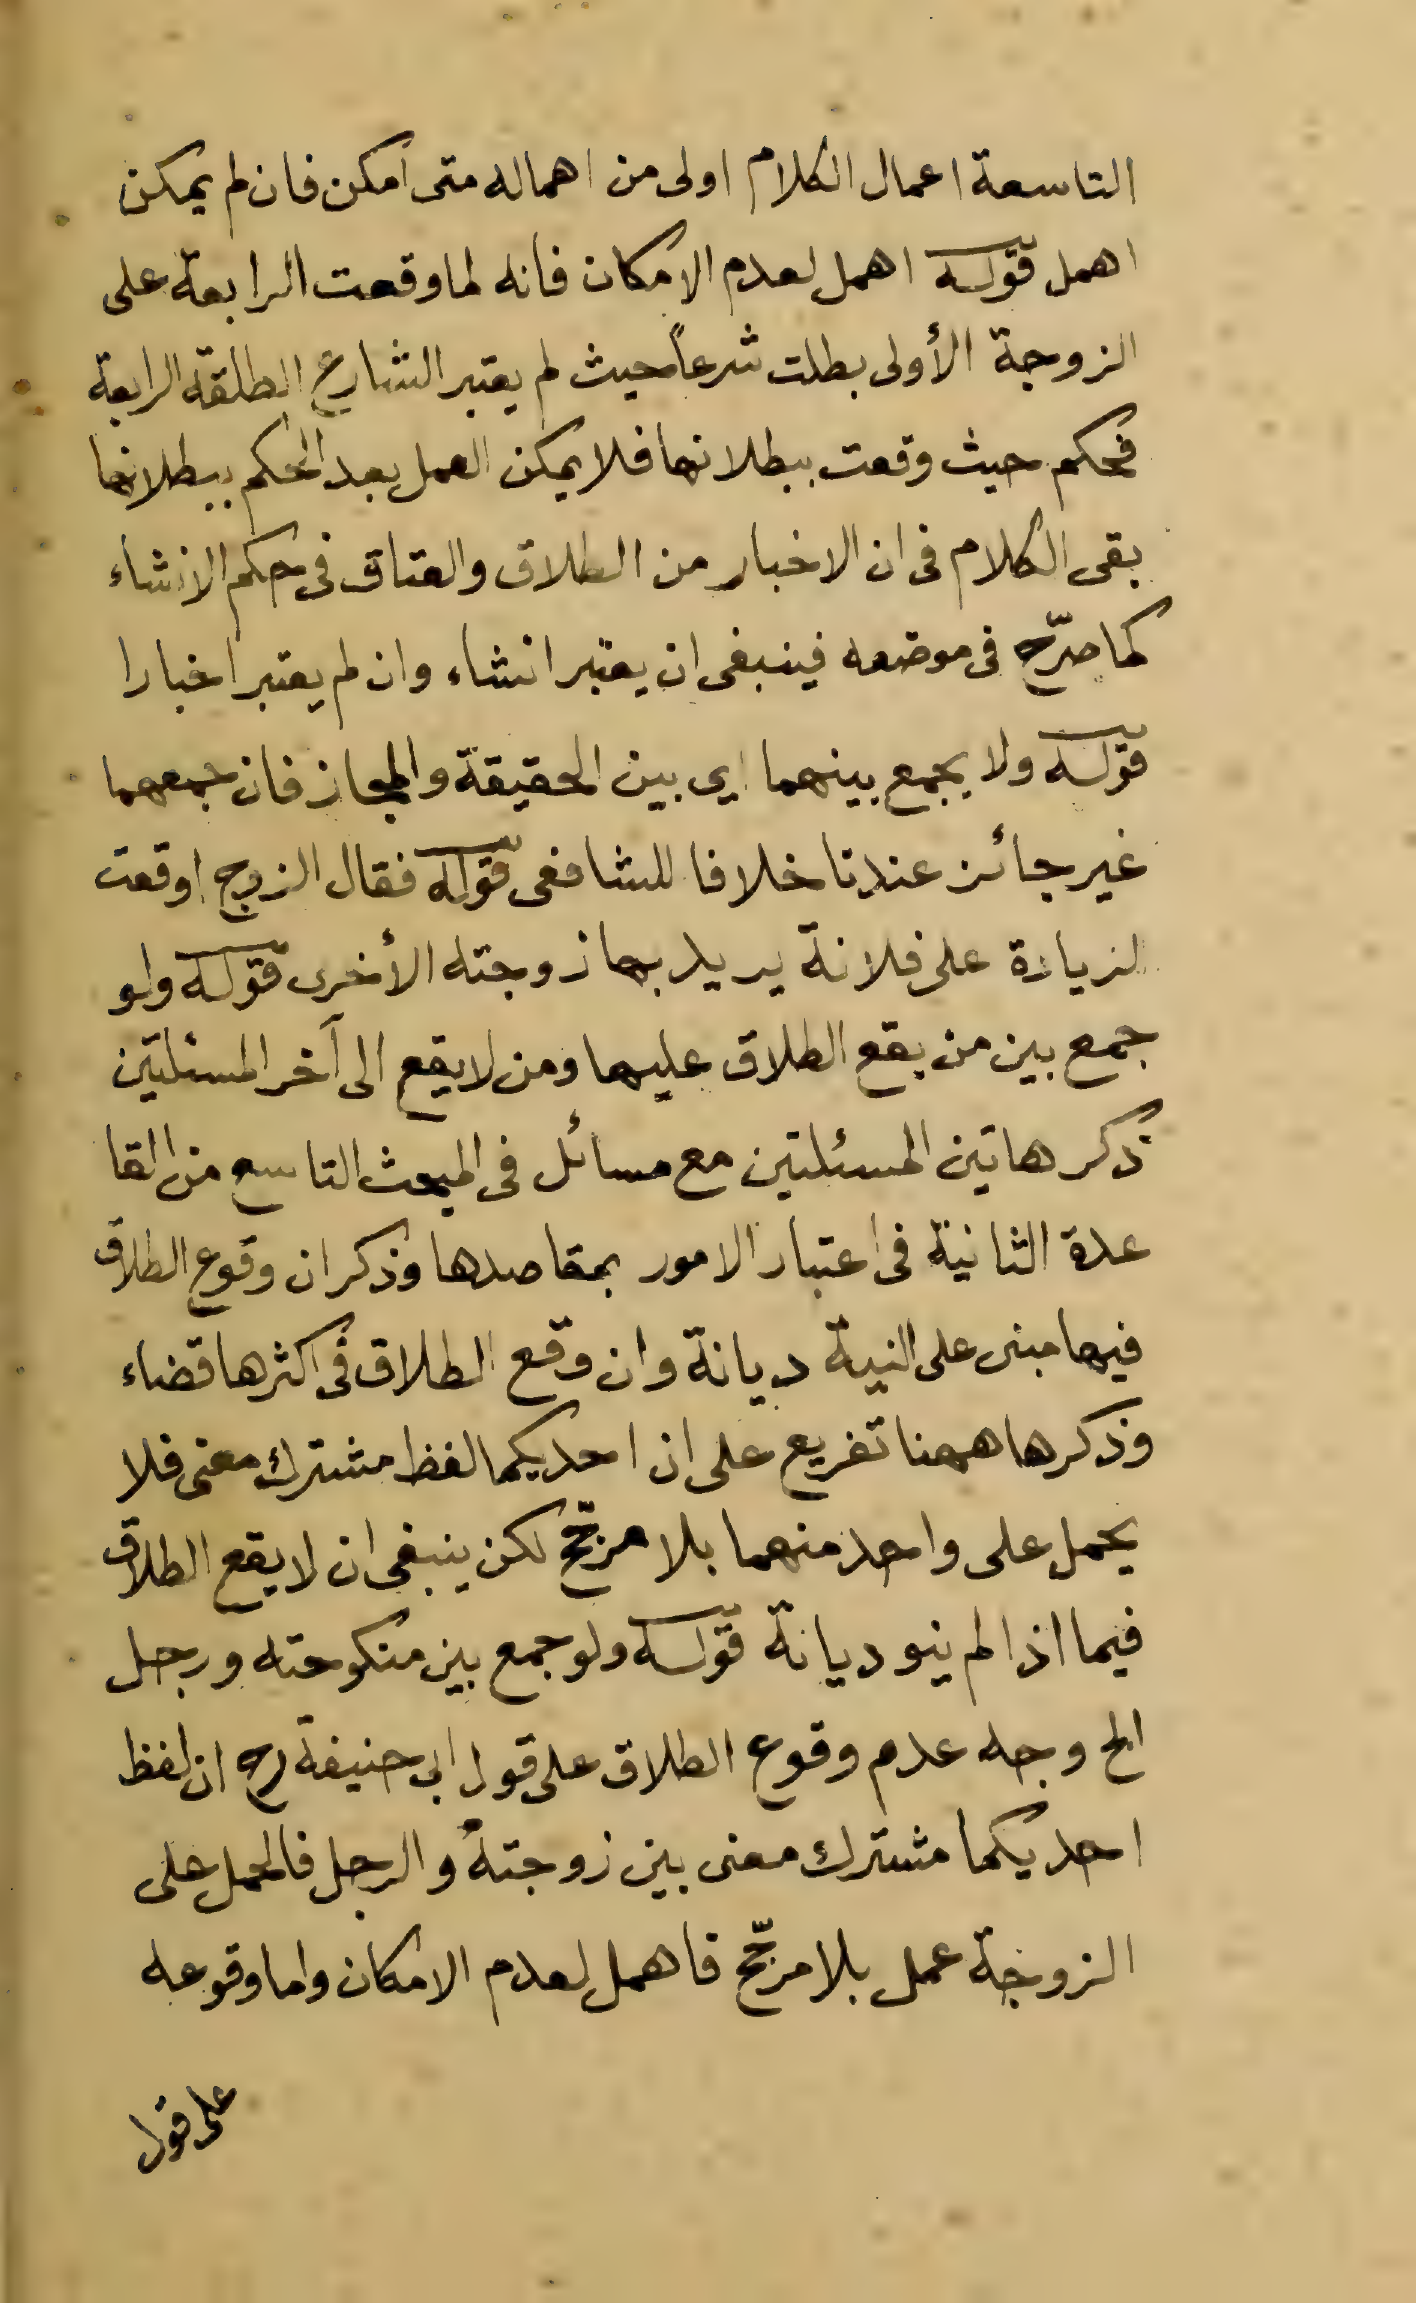 التاسعة اعمال الكلام اولى من اهماله متى امكن فان لم يمكن
اهمل قوله اهمل لعدم الامكان فانه لما وقعت الرابعة على
الزوجة الأولى بطلت شرعاً حيث لم يعتبر الشارع الطلقة الرابعة
فحكم حيث وقعت ببطلانها فلا يمكن العمل بعد الحكم ببطلانها
بقى الكلام فى ان الاخبار من الطلاق والعتاق فى حكم الانشاء
كما صرّح فى موضعه فينبغى ان يعتبر انشاء وان لم يعتبر اخبارا
قوله ولا يجمع بينهما اى بين الحقيقة والمجاز فان جمعهما
غير جائز عندنا خلافا للشافعى قوله فقال الزوج اوقعت
الزيادة على فلانة يريد بها زوجته الأخرى قوله ولو
جمع بين من يقع الطلاق عليها ومن لا يقع الى آخر المسئلتين
ذكر هاتين المسئلتين مع مسائل فى المبحث التاسع من القا
عدة الثانية فى اعتبار الامور بمقاصدها وذكر ان وقوع الطلاق
فيها مبنى على النية ديانة وان وقع الطلاق فى اكثرها قضاء
وذكرها ههنا تفريع على ان احديكما لفظ مشترك معنى فلا
يحمل على واحد منهما بلا مرجّح لكن ينبغى ان لا يقع الطلاق
فيما اذا لم ينو ديانة قوله ولو جمع بين منكوحته ورجل
الخ وجه عدم وقوع الطلاق على قول ابى حنيفة رح ان لفظ
احديكما مشترك معنى بين زوجته والرجل فالحمل على
الزوجة عمل بلا مرجّح فاهمل لعدم الامكان واما وقوعه
على قول